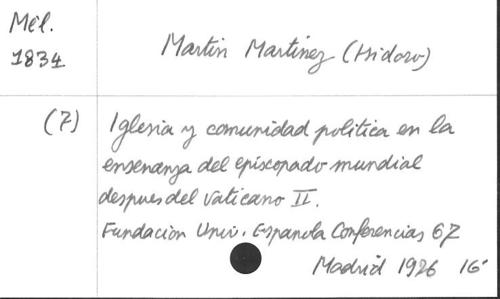 Mél.
1834
Martin Martinez (Isidoro)
(7)
Iglesia y comunidad politica en la
ensenanza del episcopado mundial
despues del Vaticano II.
Fundacion Univ. Espanola Conferencias 67
Madrid 1976 16°